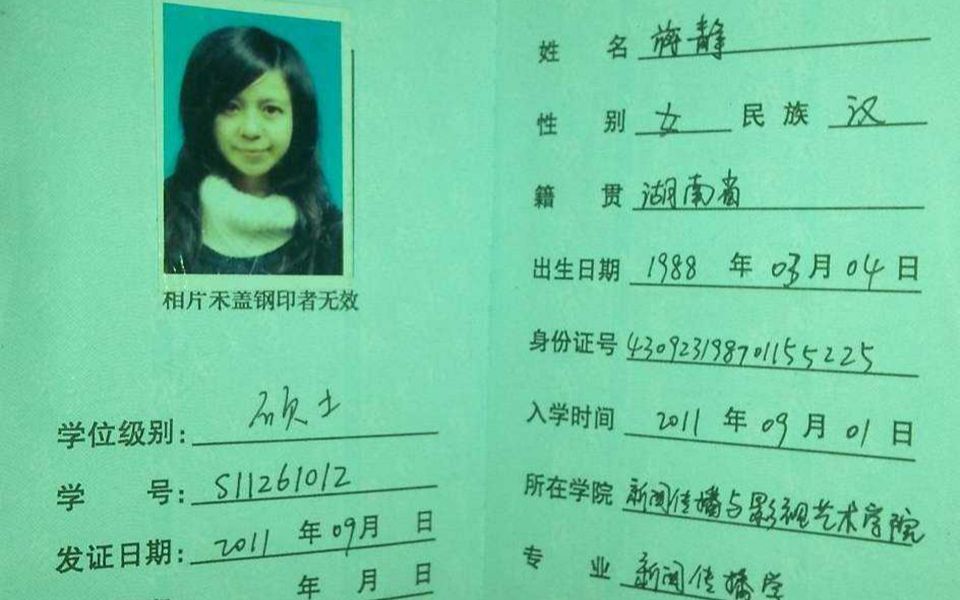 相片未盖钢印者无效
学位级别：硕士
学 号：S11261012
发证日期：2011 年 09 月 日
年 月 日
姓 名 蒋静
性 别 女 民 族 汉
籍 贯 湖南省
出生日期 1988 年 03 月 04 日
身份证号 430923198701155225
入学时间 2011 年 09 月 01 日
所在学院 新闻传播与影视艺术学院
专 业 新闻传播学